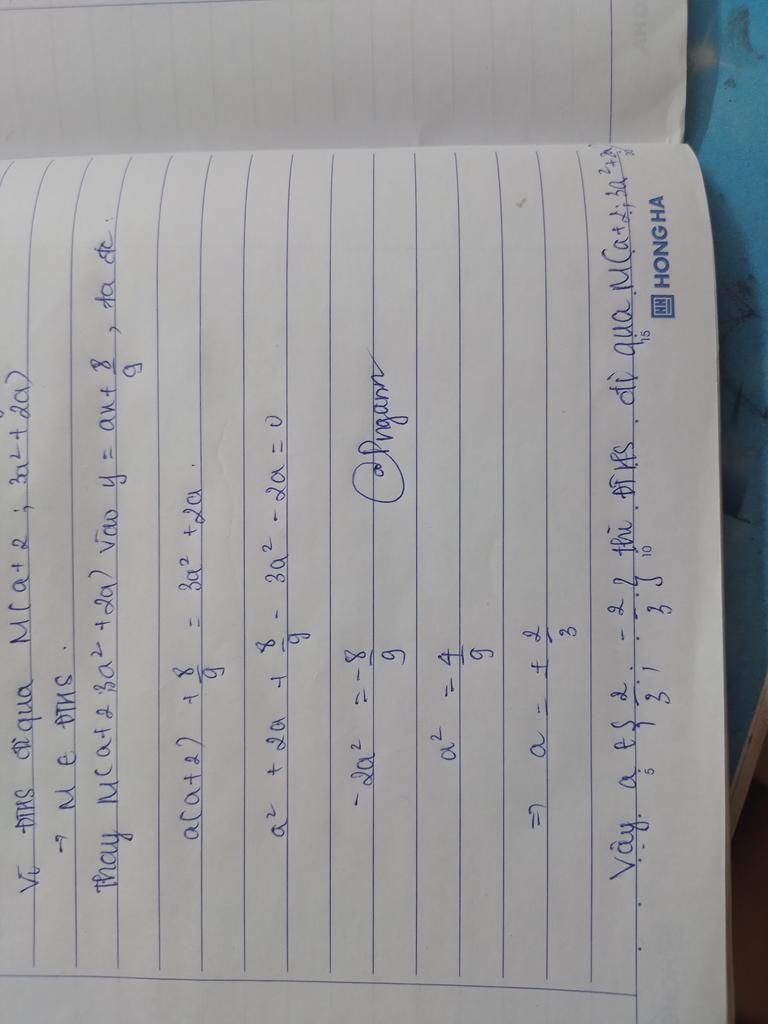 Vì ĐTHS đi qua M(a+2; 3a²+2a)
→ M ∈ ĐTHS.
Thay M(a+2 3a²+2a) vào y = ax + 8/9, ta đc:
a(a+2) + 8/9 = 3a² + 2a.
a² + 2a + 8/9 - 3a² - 2a = 0
-2a² = -8/9
@Pngann
a² = 4/9
=> a = ± 2/3
Vậy a ∈ { 2/3 ; -2/3 } thì ĐTHS đi qua M(a+2; 3a²+2a)
5 10 15 20
HONG HA